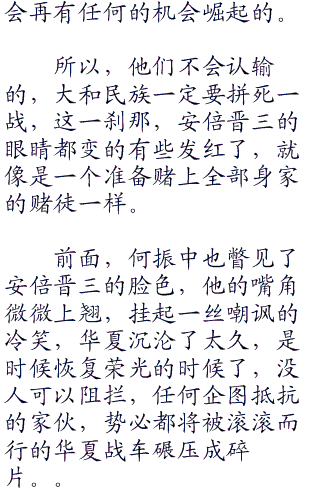 会再有任何的机会崛起的。
所以，他们不会认输
的，大和民族一定要拼死一
战，这一刹那，安倍晋三的
眼睛都变的有些发红了，就
像是一个准备赌上全部身家
的赌徒一样。
前面，何振中也瞥见了
安倍晋三的脸色，他的嘴角
微微上翘，挂起一丝嘲讽的
冷笑，华夏沉沦了太久，是
时候恢复荣光的时候了，没
人可以阻拦，任何企图抵抗
的家伙，势必都将被滚滚而
行的华夏战车碾压成碎
片。。